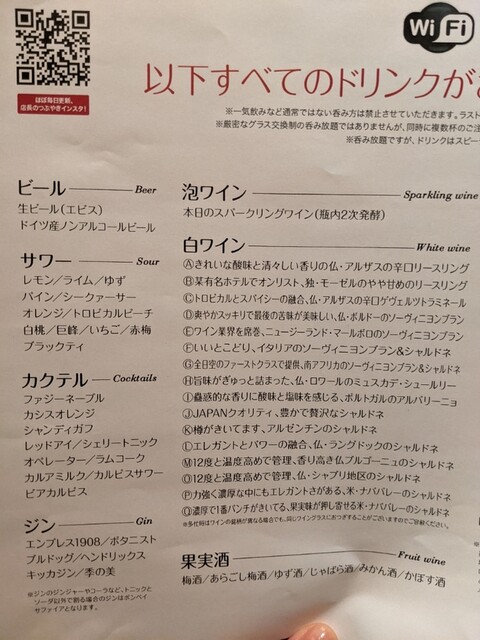 WiFi
ほぼ毎日更新、
店長のつぶやきインスタ!
以下すべてのドリンクが
※一気飲みなど通常ではない呑み方は禁止させていただきます。ラスト
※厳密なグラス交換制の呑み放題ではありませんが、同時に複数杯のご注
※呑み放題ですが、ドリンクはスピー
ビール Beer
生ビール(エビス)
ドイツ産ノンアルコールビール
サワー Sour
レモン/ライム/ゆず
パイン/シークァーサー
オレンジ/トロピカルピーチ
白桃/巨峰/いちご/赤梅
ブラックティ
カクテル Cocktails
ファジーネーブル
カシスオレンジ
シャンディガフ
レッドアイ/シェリートニック
オペレーター/ラムコーク
カルアミルク/カルピスサワー
ビアカルピス
ジン Gin
エンプレス1908/ボタニスト
ブルドッグ/ヘンドリックス
キッカジン/季の美
※ジンのジンジャーやコーラなど、トニックと
ソーダ以外で割る場合のジンはボンベイ
サファイアとなります。
泡ワイン Sparkling wine
本日のスパークリングワイン(瓶内2次発酵)
白ワイン White wine
Ⓐきれいな酸味と清々しい香りの仏・アルザスの辛口リースリング
Ⓑ某有名ホテルでオンリスト、独・モーゼルのやや甘めのリースリング
Ⓒトロピカルとスパイシーの融合、仏・アルザスの辛口ゲヴェルツトラミネール
Ⓓ爽やかスッキリで最後の苦味が美味しい、仏・ボルドーのソーヴィニヨンブラン
Ⓔワイン業界を席巻、ニュージーランド・マールボロのソーヴィニヨンブラン
Ⓕいいとこどり、イタリアのソーヴィニヨンブラン&シャルドネ
Ⓖ全日空のファーストクラスで提供、南アフリカのソーヴィニヨンブラン&シャルドネ
Ⓗ旨味がぎゅっと詰まった、仏・ロワールのミュスカデ・シュールリー
Ⓘ蠱惑的な香りに酸味と塩味を感じる、ポルトガルのアルバリーニョ
ⒿJAPANクオリティ、豊かで贅沢なシャルドネ
Ⓚ樽がきいてます、アルゼンチンのシャルドネ
Ⓛエレガントとパワーの融合、仏・ラングドックのシャルドネ
Ⓜ12度と温度高めで管理、香り高き仏ブルゴーニュのシャルドネ
Ⓞ12度と温度高めで管理、仏・シャブリ地区のシャルドネ
Ⓟ力強く濃厚な中にもエレガントさがある、米・ナパバレーのシャルドネ
Ⓠ濃厚で1番パンチがきいてる、果実味が押し寄せる米・ナパバレーのシャルドネ
※多忙時はワインの銘柄が異なる場合でも、同じワイングラスにおつぎすることがございますのでご容赦ください。
果実酒 Fruit wine
梅酒/あらごし梅酒/ゆず酒/じゃばら酒/みかん酒/かぼす酒